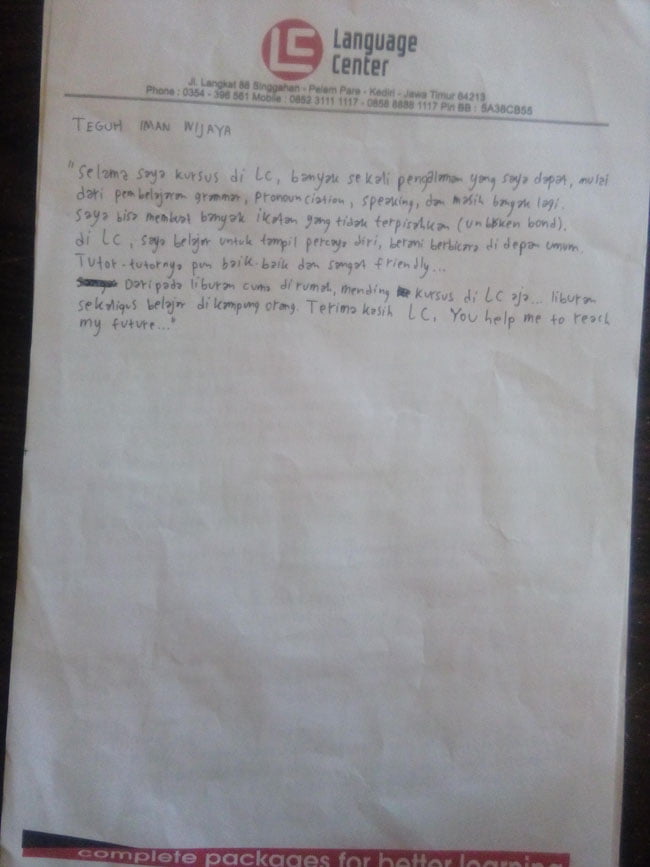 LC
Language
Center
Jl. Langkat 88 Singgahan - Pelem Pare - Kediri - Jawa Timur 64213
Phone : 0354 - 396 561 Mobile : 0852 3111 1117 - 0858 8688 1117 Pin BB : 5A38CB55
TEGUH IMAN WIJAYA
"Selama saya kursus di LC, banyak sekali pengalaman yang saya dapat, mulai
dari pembelajaran grammar, pronounciation, speaking, dan masih banyak lagi.
Saya bisa membuat banyak ikatan yang tidak terpisahkan (unbroken bond).
di LC, saya belajar untuk tampil percaya diri, berani berbicara di depan umum.
Tutor-tutornya pun baik-baik dan sangat friendly...
Daripada liburan cuma dirumah, mending kursus di LC aja... liburan
sekaligus belajar di kampung orang. Terima kasih LC, You help me to reach
my future..."
complete packages for better learning